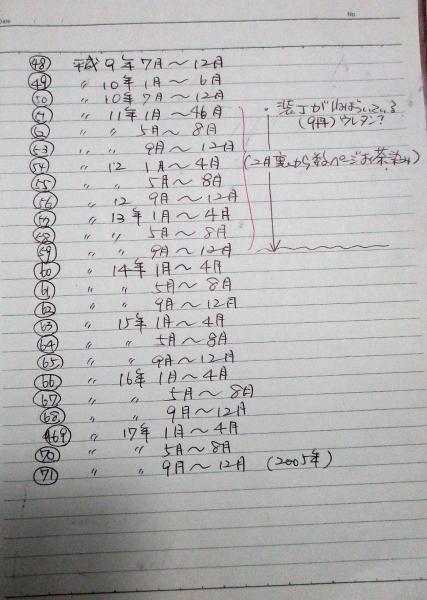 Date
No.
㊽ 平成 9年 7月～12月
㊾ 〃 10年 1月～ 6月
㊿ 〃 10年 7月～12月
51 〃 11年 1月～4月
52 〃 〃 5月～ 8月
53 〃 〃 9月～12月
54 〃 12 1月～4月
55 〃 〃 5月～8月
56 〃 12 9月～12月
57 〃 13年 1月～4月
58 〃 〃 5月～8月
59 〃 〃 9月～12月
60 〃 14年 1月～4月
61 〃 〃 5月～8月
62 〃 〃 9月～12月
63 〃 15年 1月～4月
64 〃 〃 5月～8月
65 〃 〃 9月～12月
66 〃 16年 1月～4月
67 〃 〃 5月～8月
68 〃 〃 9月～12月
69 〃 17年 1月～4月
70 〃 〃 5月～8月
71 〃 〃 9月～12月 (2005年)
・装丁が
(9冊) ウレタン?